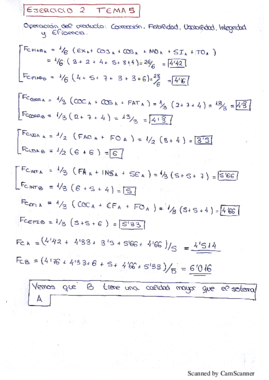 EJERCICIO 2 TEMA 5
Operación del producto: Corrección, Fiabilidad, Usabilidad, Integridad
y Eficiencia.
= 1/6 (EXA + COSA + COSA + MOA + SIA + TOA)
[4'42]
[4'16]
FCFIABA = 1/3 (COCA + COSA + FATA) = 1/3 (2+7+4) = 13/3 = [4'3]
FCFIABB = 1/3 (2+7+4) = 13/3 = [4'3]
= 1/2 (FAOA + FOA) = 1/2 (3+4) = [3'5]
= 1/2 (6+6) = [6]
FCINTA = 1/3 (FAA + INSA + SEA) = 1/3 (5+5+7) = [5'66]
FCINTB = 1/3 (6+5+4) = [5]
FCEFIA = 1/3 (COCA + EFA + FOA) = 1/3 (5+5+4) = [4'66]
FCEFIB = 1/3 (5+5+6) = [5'33]
FCA = (4'42 + 4'33 + 3'5 + 5'66 + 4'66)/5 = 4'514
FCB = (4'16 + 4'33 + 6 + 5 + 4'66 + 5'33)/5 = 6'016
Vemos que B tiene una calidad mayor que el sistema
A
Scanned by CamScanner